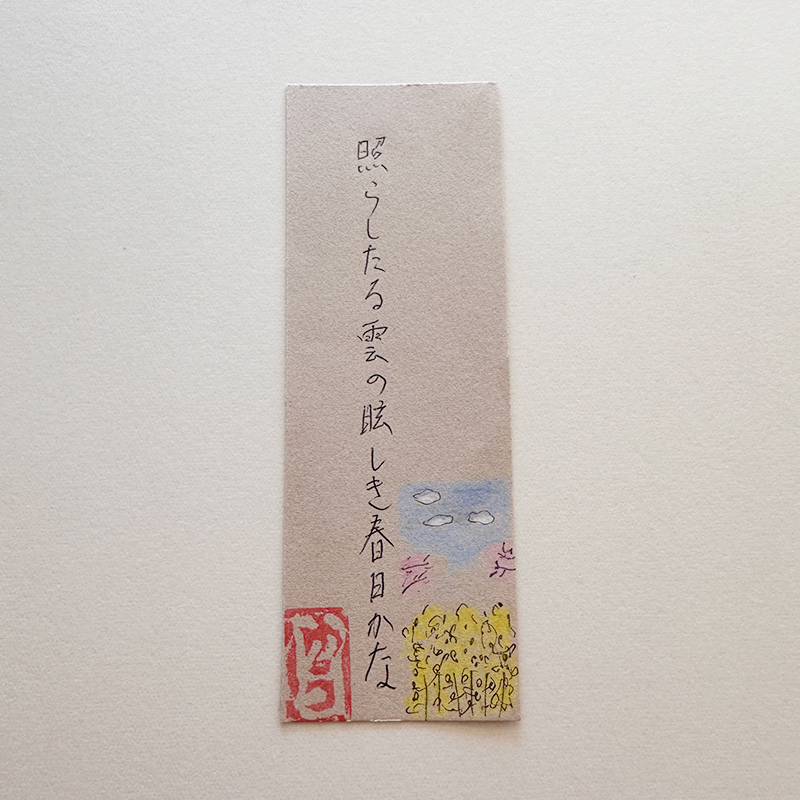 照らしたる雲の眩しき春日かな